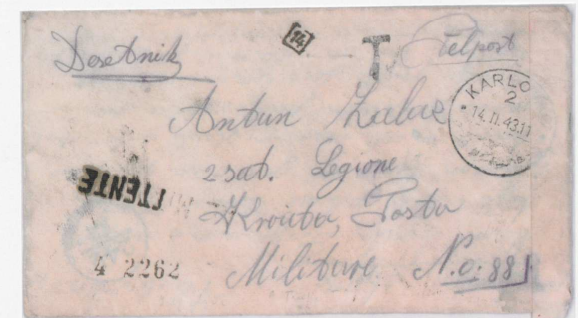 Desetnik
14
T
Felpost
KARLO
2
14.II.43.11
Antun Zalac
2 sat. Legione
Kroata, Posta
Militare N.o: 881
4 2262